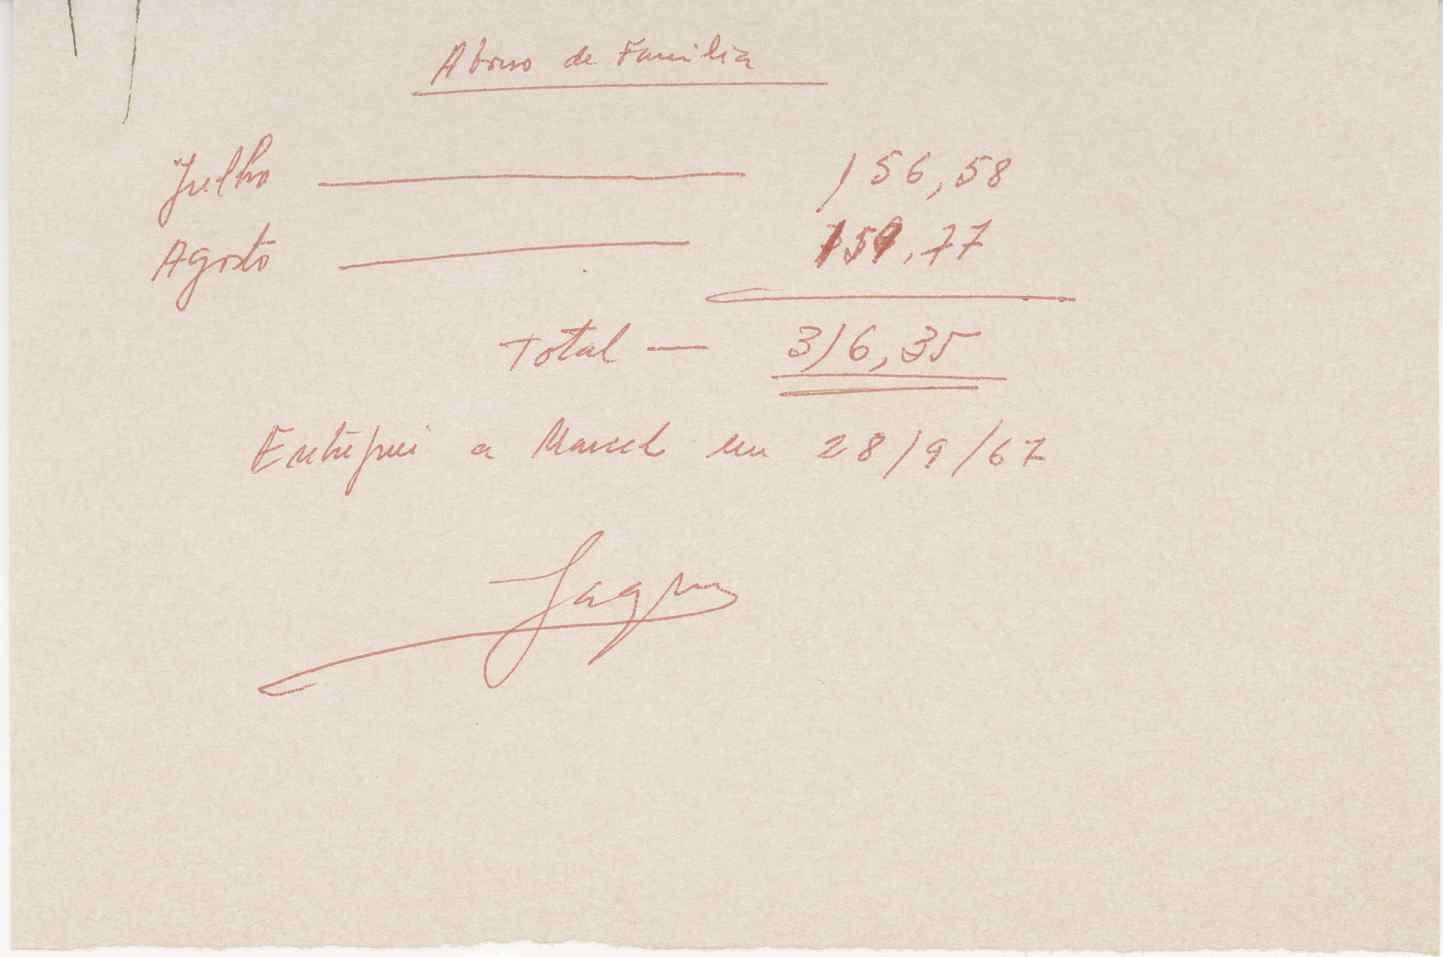 Abono de Familia
Julho — 156,58
Agosto — 159,77
Total — 316,35
Entreguei a Marcel em 28/9/67